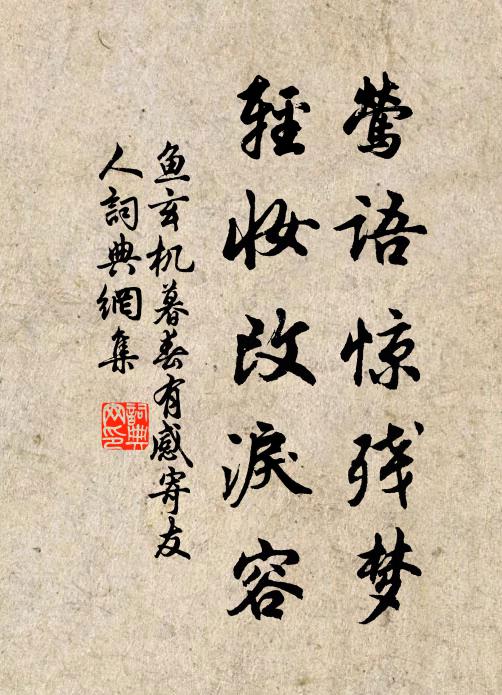 莺语惊残梦
輕妆改淚容
鱼玄机暮春有感寄友
人詞典網集
詞典
网印